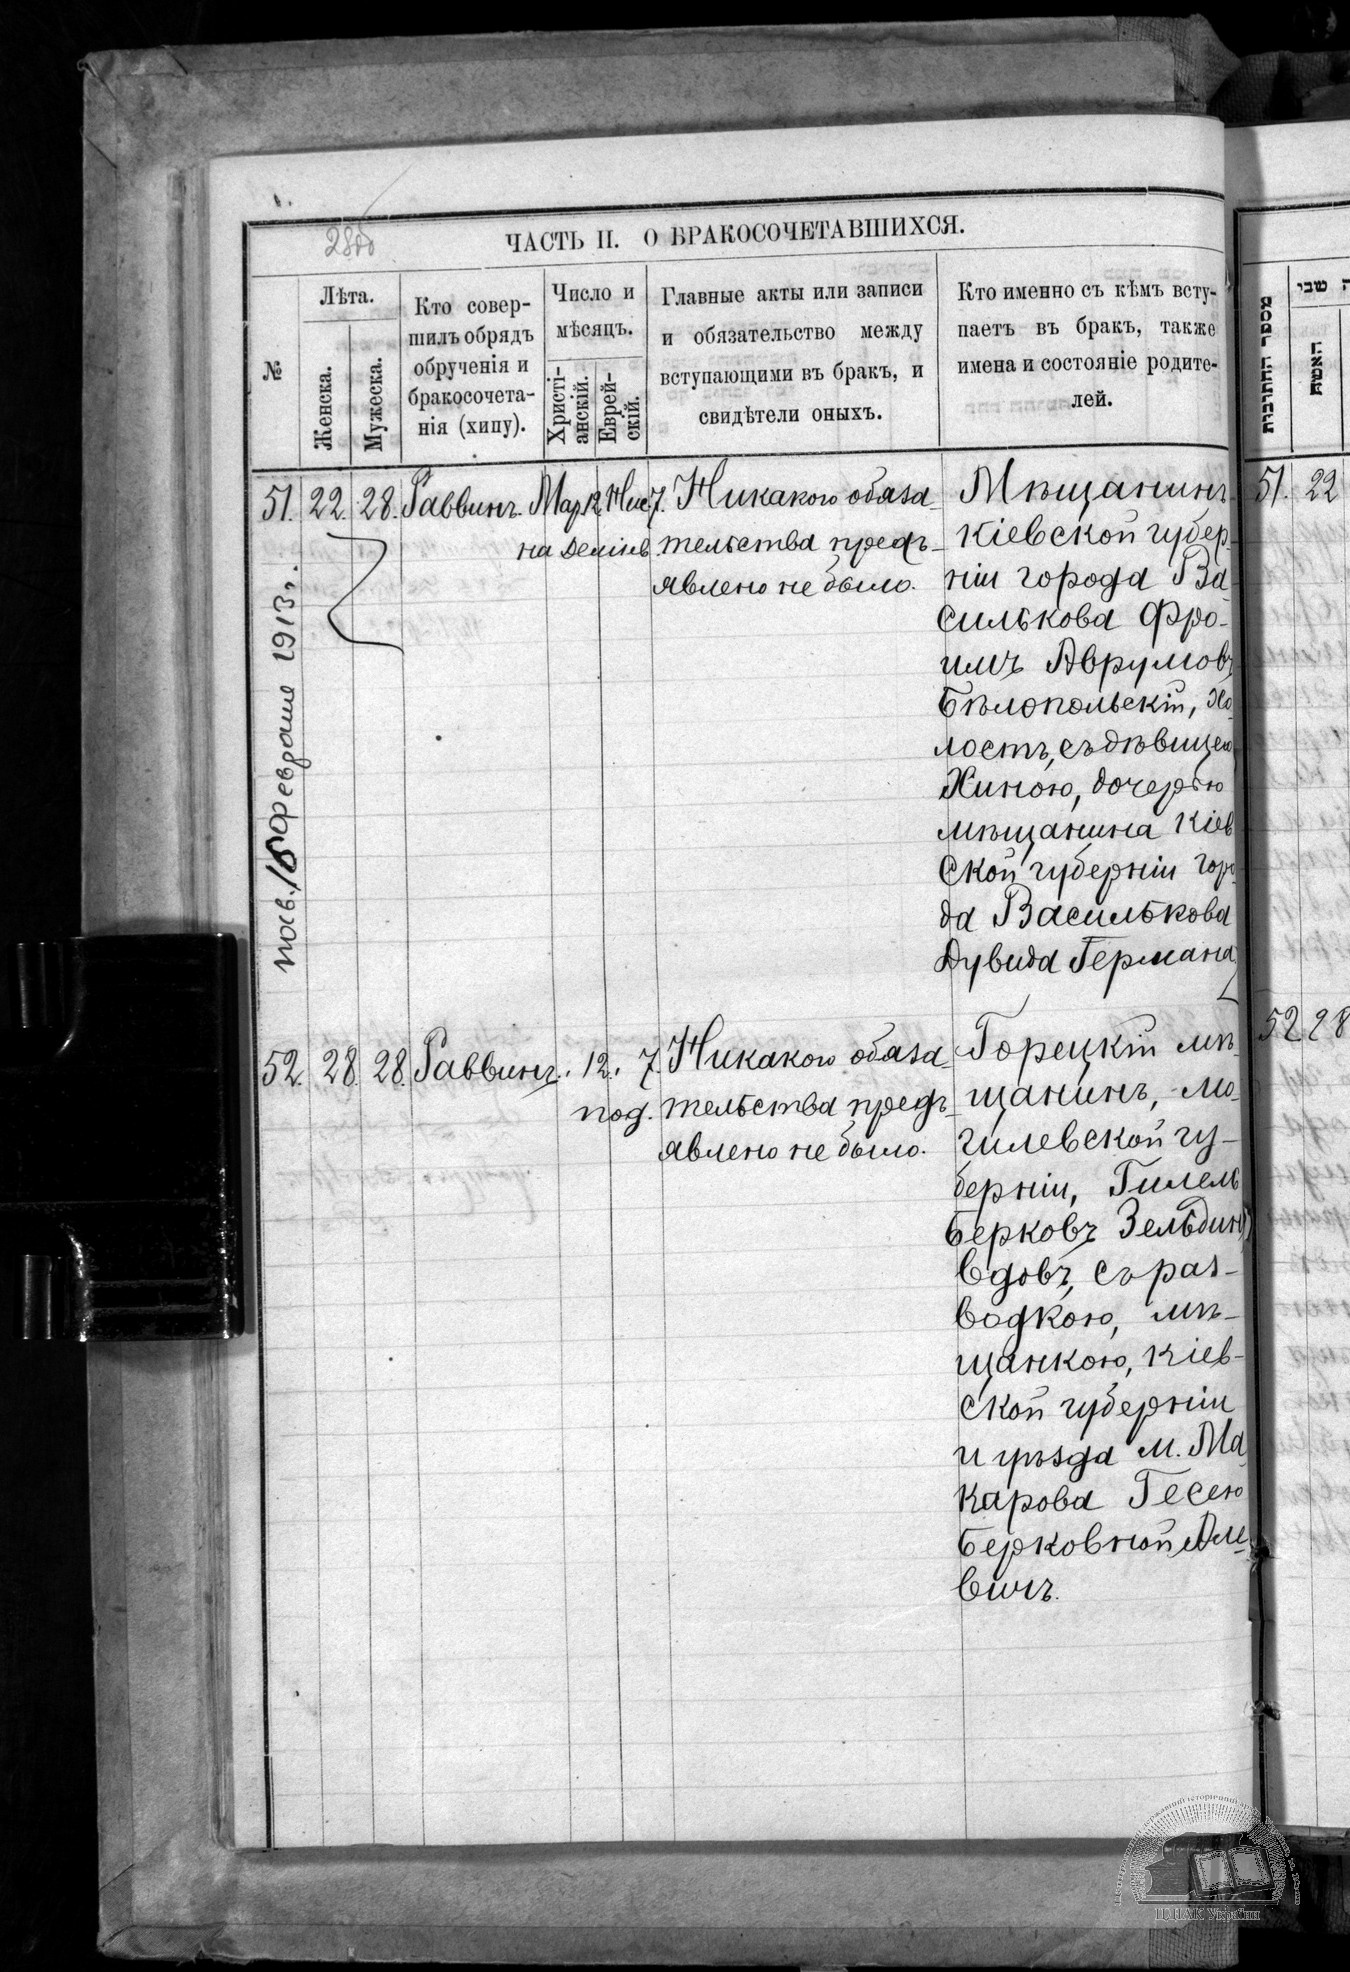 28об
ЧАСТЬ II. О БРАКОСОЧЕТАВШИХСЯ.
№
Лѣта.
Женска.
Мужеска.
Кто совер-
шилъ обрядъ
обрученія и
бракосочета-
нія (хипу).
Число и
мѣсяцъ.
Христі-
анскій.
Еврей-
скій.
Главные акты или записи
и обязательство между
вступающими въ бракъ, и
свидѣтели оныхъ.
Кто именно съ кѣмъ всту-
паетъ въ бракъ, также
имена и состояніе родите-
лей.
51. 22. 28. Раввинъ. Мар. 12. Нис. 7.
на Деміев.
Никакого обяза-
тельства предъ-
явлено не было.
Мѣщанинъ
Кіевской губер-
ніи города Ва-
силькова Фро-
имъ Аврумовъ
Бѣлопольскій, хо-
лостъ, съ дѣвицею
Хиною, дочерью
мѣщанина Кіев
ской губерніи горо-
да Василькова
Дувида Германа
февраля 1913 г.
52. 28. 28. Раввинъ. 12. 7.
под.
Никакого обяза-
тельства предъ-
явлено не было.
Горецкій мѣ-
щанинъ, Мо-
гилевской гу-
берніи, Гилель
Берковъ Зельдинъ
вдовъ, съ раз-
водкою, мѣ-
щанкою, Кіев-
ской губерніи
и уѣзда м. Ма
карова Гесею
Берковной Але-
вичъ.
מספר החתונות
ה שבי
האשה
51. 22
52 28
ЦДІАК України